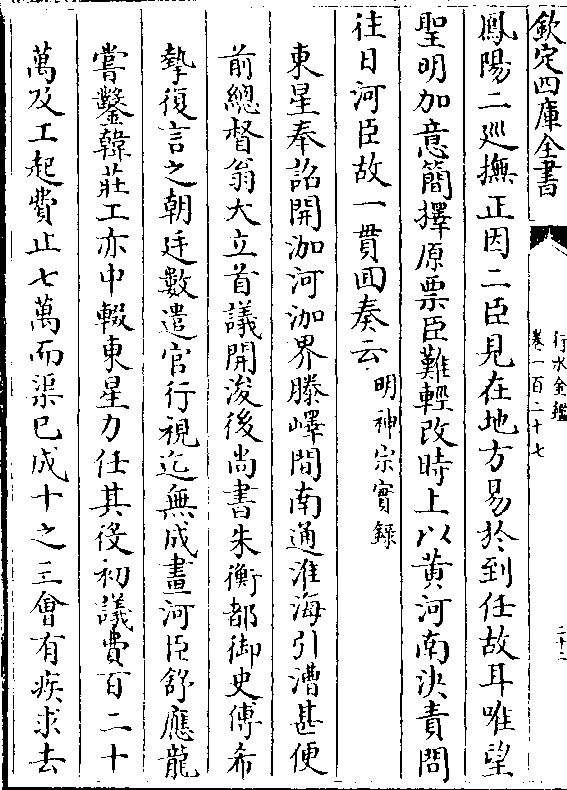 欽定四庫全書
行水金鑑
卷一百二十七
二十二
鳳陽二巡撫正因二臣見在地方易於到任故耳唯望
聖明加意簡擇原票臣難輕改時上以黄河南決責問
往日河臣故一貫回奏云明神宗實錄
東星奉詔開泇河泇界滕嶧間南通淮海引漕甚便
前總督翁大立首議開浚後尚書朱衡都御史傅希
摯復言之朝廷數遣官行視迄無成畫河臣舒應龍
嘗鑿韓莊工亦中輟東星力任其役初議費百二十
萬及工起費止七萬而渠已成十之三會有疾求去